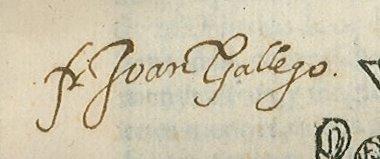 fr Joan Gallego.